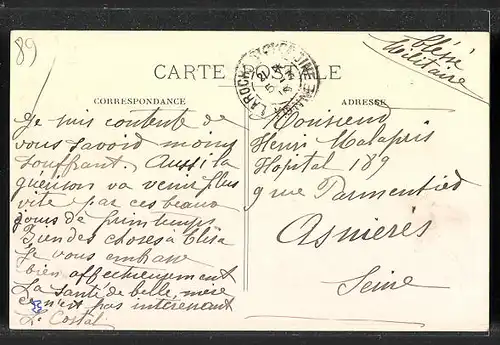 89
Blessé
Militaire
CARTE POSTALE
LAROCHE
YONNE
CORRESPONDANCE
ADRESSE
Je suis contente de
vous savoid moins
souffrant. Aussi la
guérison va venir plus
vite par ces beaux
jours de printemps
Bien des choses à Elisa
Je vous embrasse
bien affectueusement
La santé de belle, mère
n'est pas
L. Costal
Monsieur
Henri Malapris
Hopital 189
9 rue Parmentied
Asnieres
Seine